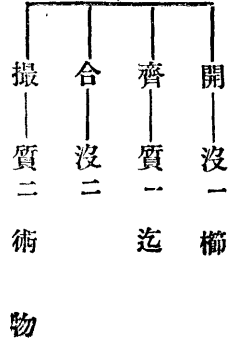 開——沒一櫛
齊——質一迄
合——沒二
撮——質二術物